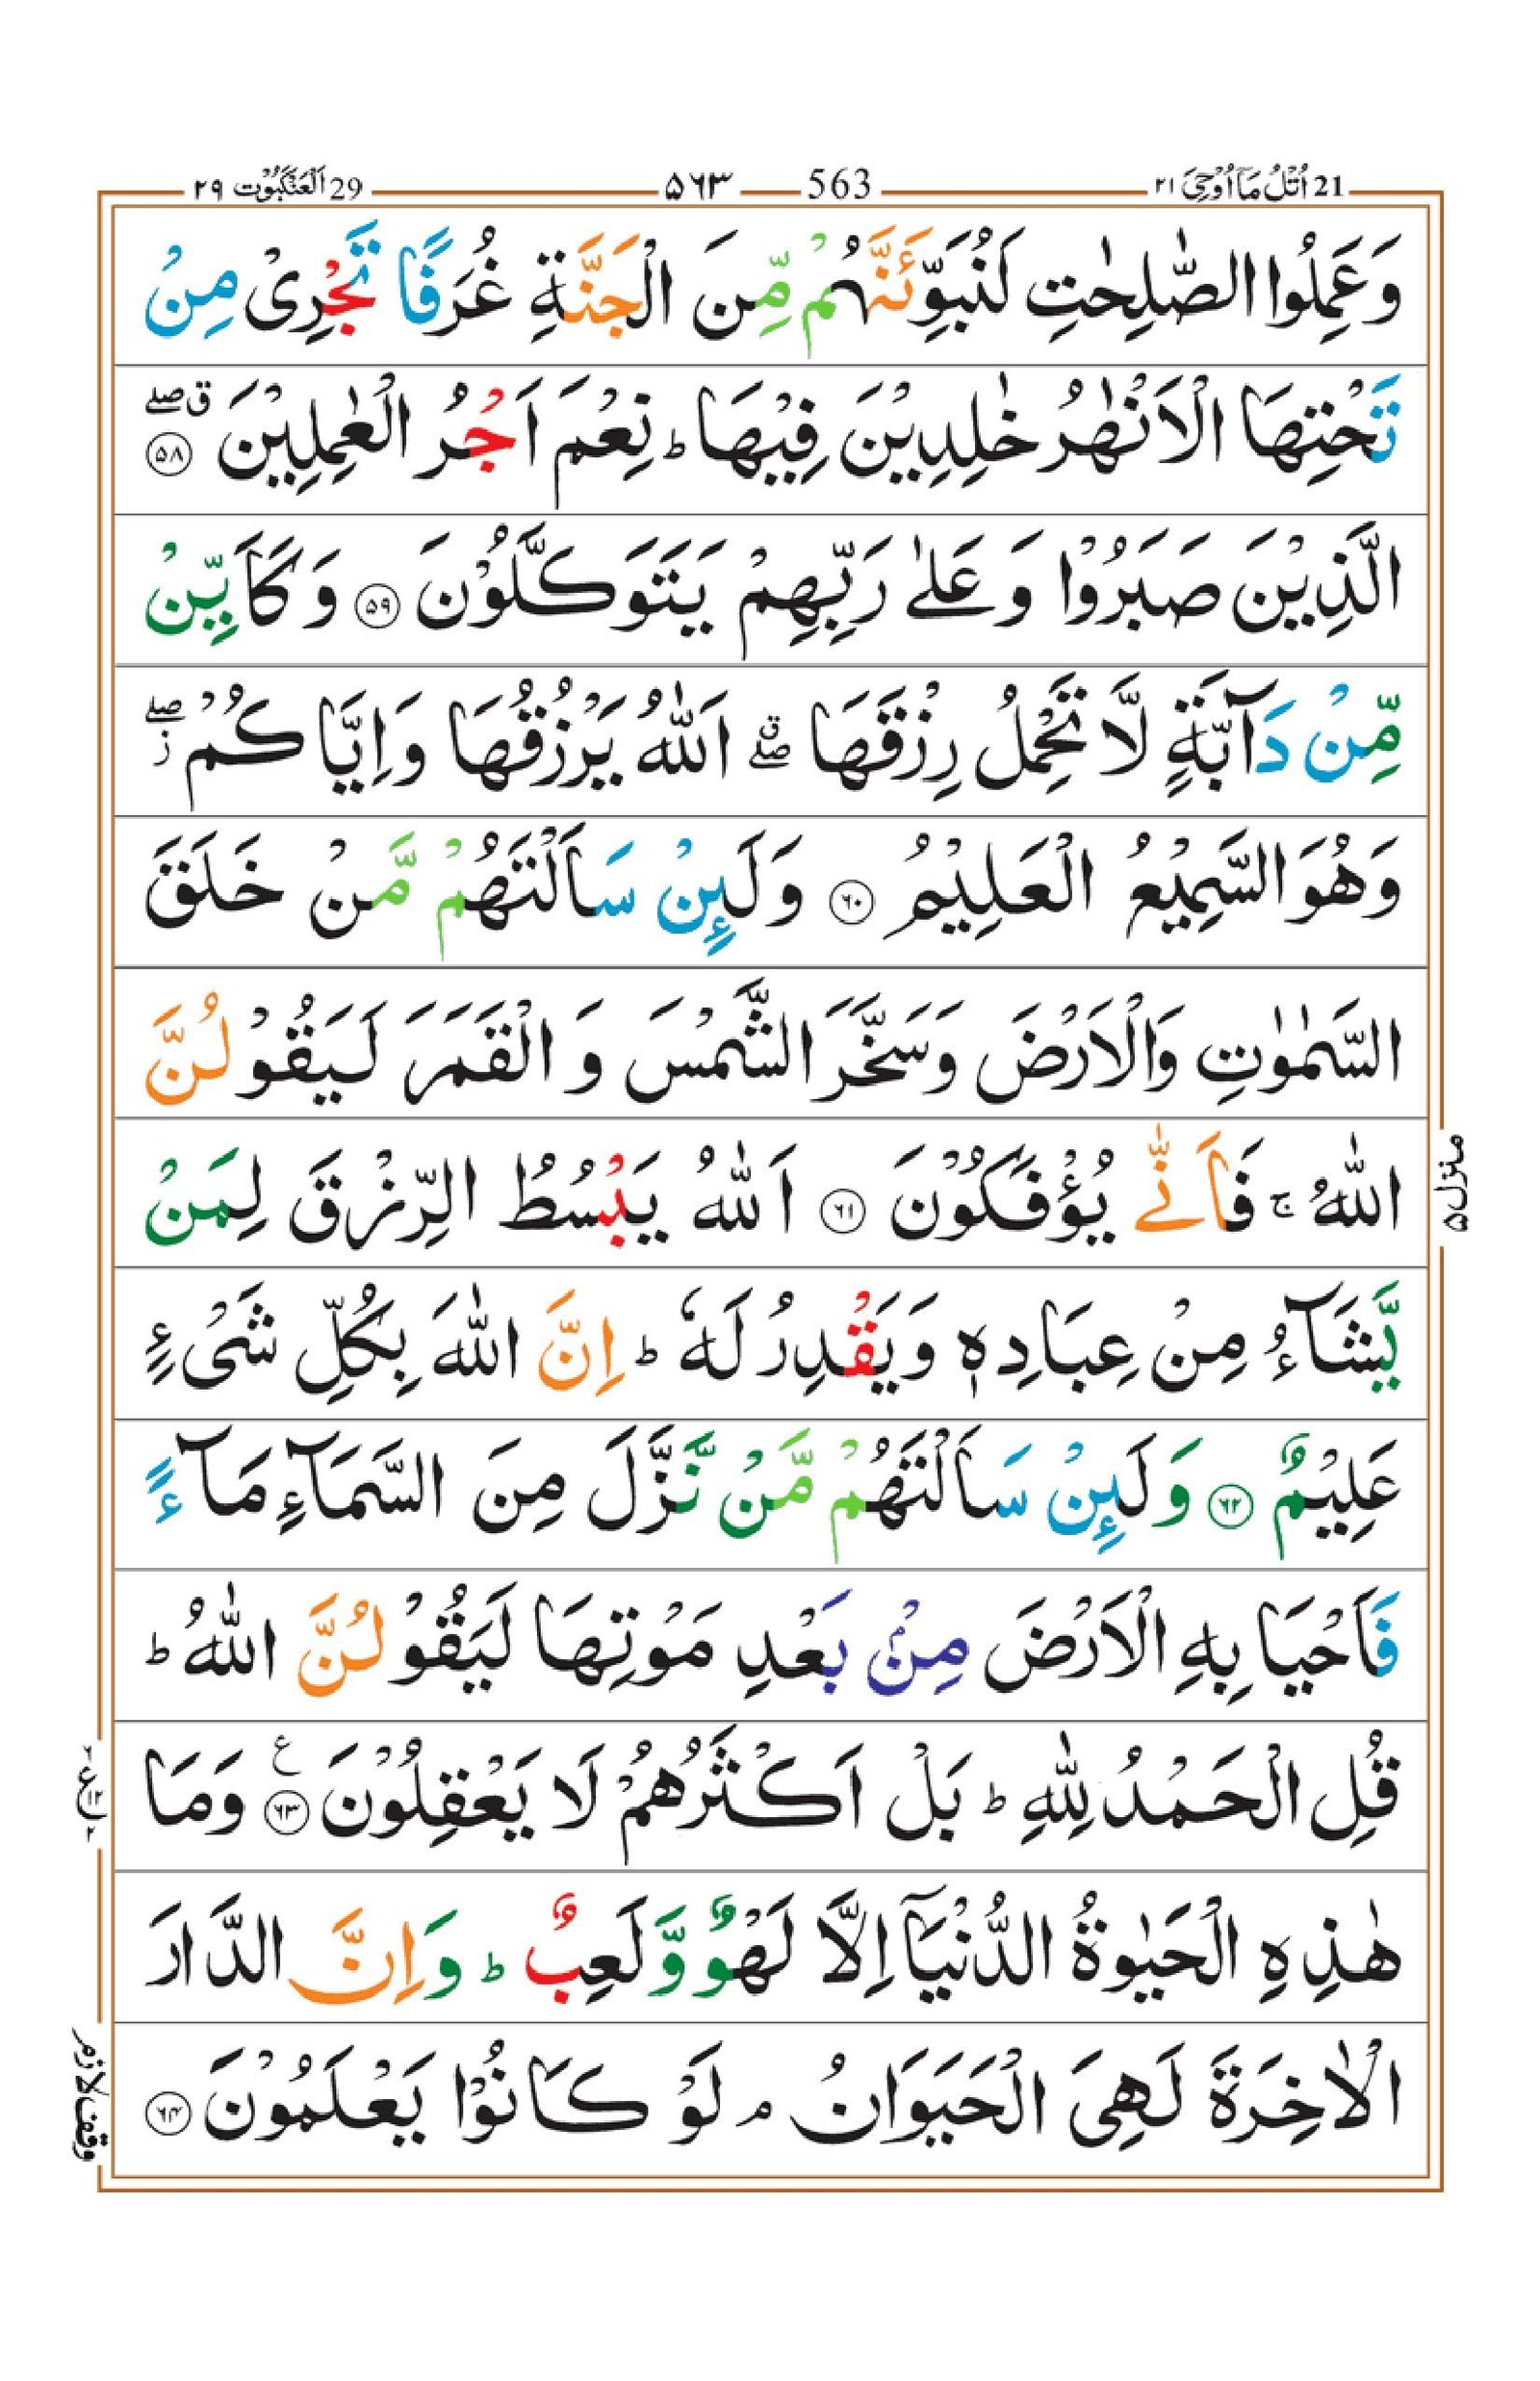 21 اُتْلُ مَآ اُوْحِیَ ٢١
563 ۵۶۳
29 اَلْعَنْكَبُوْت ٢٩
وَعَمِلُوا الصّٰلِحٰتِ لَنُبَوِّئَنَّهُمْ مِّنَ الْجَنَّةِ غُرَفًا تَجْرِیْ مِنْ
تَحْتِهَا الْاَنْهٰرُ خٰلِدِیْنَ فِیْهَا ؕ نِعْمَ اَجْرُ الْعٰمِلِیْنَ ۵۸ ق صلے
الَّذِیْنَ صَبَرُوْا وَ عَلٰی رَبِّهِمْ یَتَوَكَّلُوْنَ ۵۹ وَ كَاَیِّنْ
مِّنْ دَآبَّةٍ لَّا تَحْمِلُ رِزْقَهَا صلے ق اَللّٰهُ یَرْزُقُهَا وَاِیَّاكُمْ صلے ز
وَهُوَ السَّمِیْعُ الْعَلِیْمُ ۶۰ وَلَىِٕنْ سَاَلْتَهُمْ مَّنْ خَلَقَ
السَّمٰوٰتِ وَالْاَرْضَ وَسَخَّرَ الشَّمْسَ وَ الْقَمَرَ لَیَقُوْلُنَّ
اللّٰهُ ۚ فَاَنّٰی یُؤْفَكُوْنَ ۶۱ اَللّٰهُ یَبْسُطُ الرِّزْقَ لِمَنْ
یَّشَآءُ مِنْ عِبَادِهٖ وَیَقْدِرُ لَهٗ ؕ اِنَّ اللّٰهَ بِكُلِّ شَیْءٍ
عَلِیْمٌ ۶۲ وَلَىِٕنْ سَاَلْتَهُمْ مَّنْ نَّزَّلَ مِنَ السَّمَآءِ مَآءً
فَاَحْیَا بِهِ الْاَرْضَ مِنْۢ بَعْدِ مَوْتِهَا لَیَقُوْلُنَّ اللّٰهُ ؕ
قُلِ الْحَمْدُ لِلّٰهِ ؕ بَلْ اَكْثَرُهُمْ لَا یَعْقِلُوْنَ ۶۳ ع وَمَا
هٰذِهِ الْحَیٰوةُ الدُّنْیَاۤ اِلَّا لَهْوٌ وَّلَعِبٌ ؕ وَاِنَّ الدَّارَ
الْاٰخِرَةَ لَهِیَ الْحَیَوَانُ ۘ لَوْ كَانُوْا یَعْلَمُوْنَ ۶۴
منزل ۵
وقف لازم